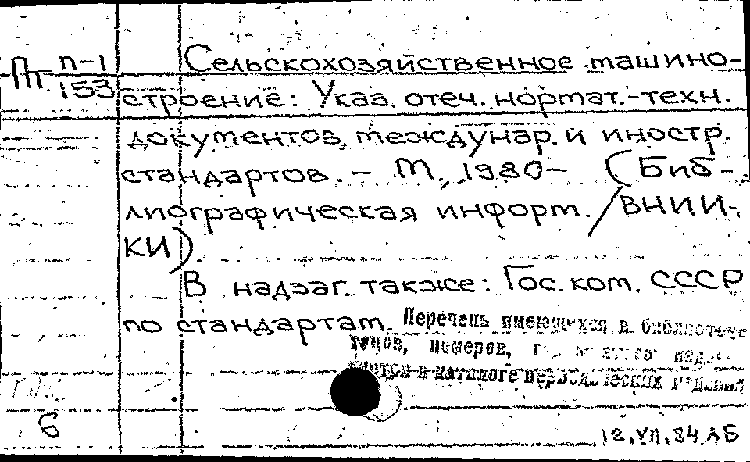 Пт п-1
153
Сельскохозяйственное машино-
строение: Указ. отеч. нормат.-техн.
документов, междунар. и иностр.
стандартов. – М., 1980– (Биб-
лиографическая информ. / ВНИИ-
КИ).
В надзаг. также: Гос. ком. СССР
по стандартам.
Перечень имеющихся в библиотеке
томов, номеров,
в каталоге периодических изданий
6
12.VII.84 АБ